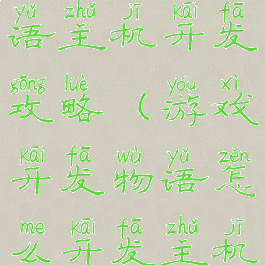 yǔ zhǔ jī kāi fā
语主机开发
gōng lüè yóu xì
攻略（游戏
kāi fā wù yǔ zěn
开发物语怎
me kāi fā zhǔ jī
么开发主机